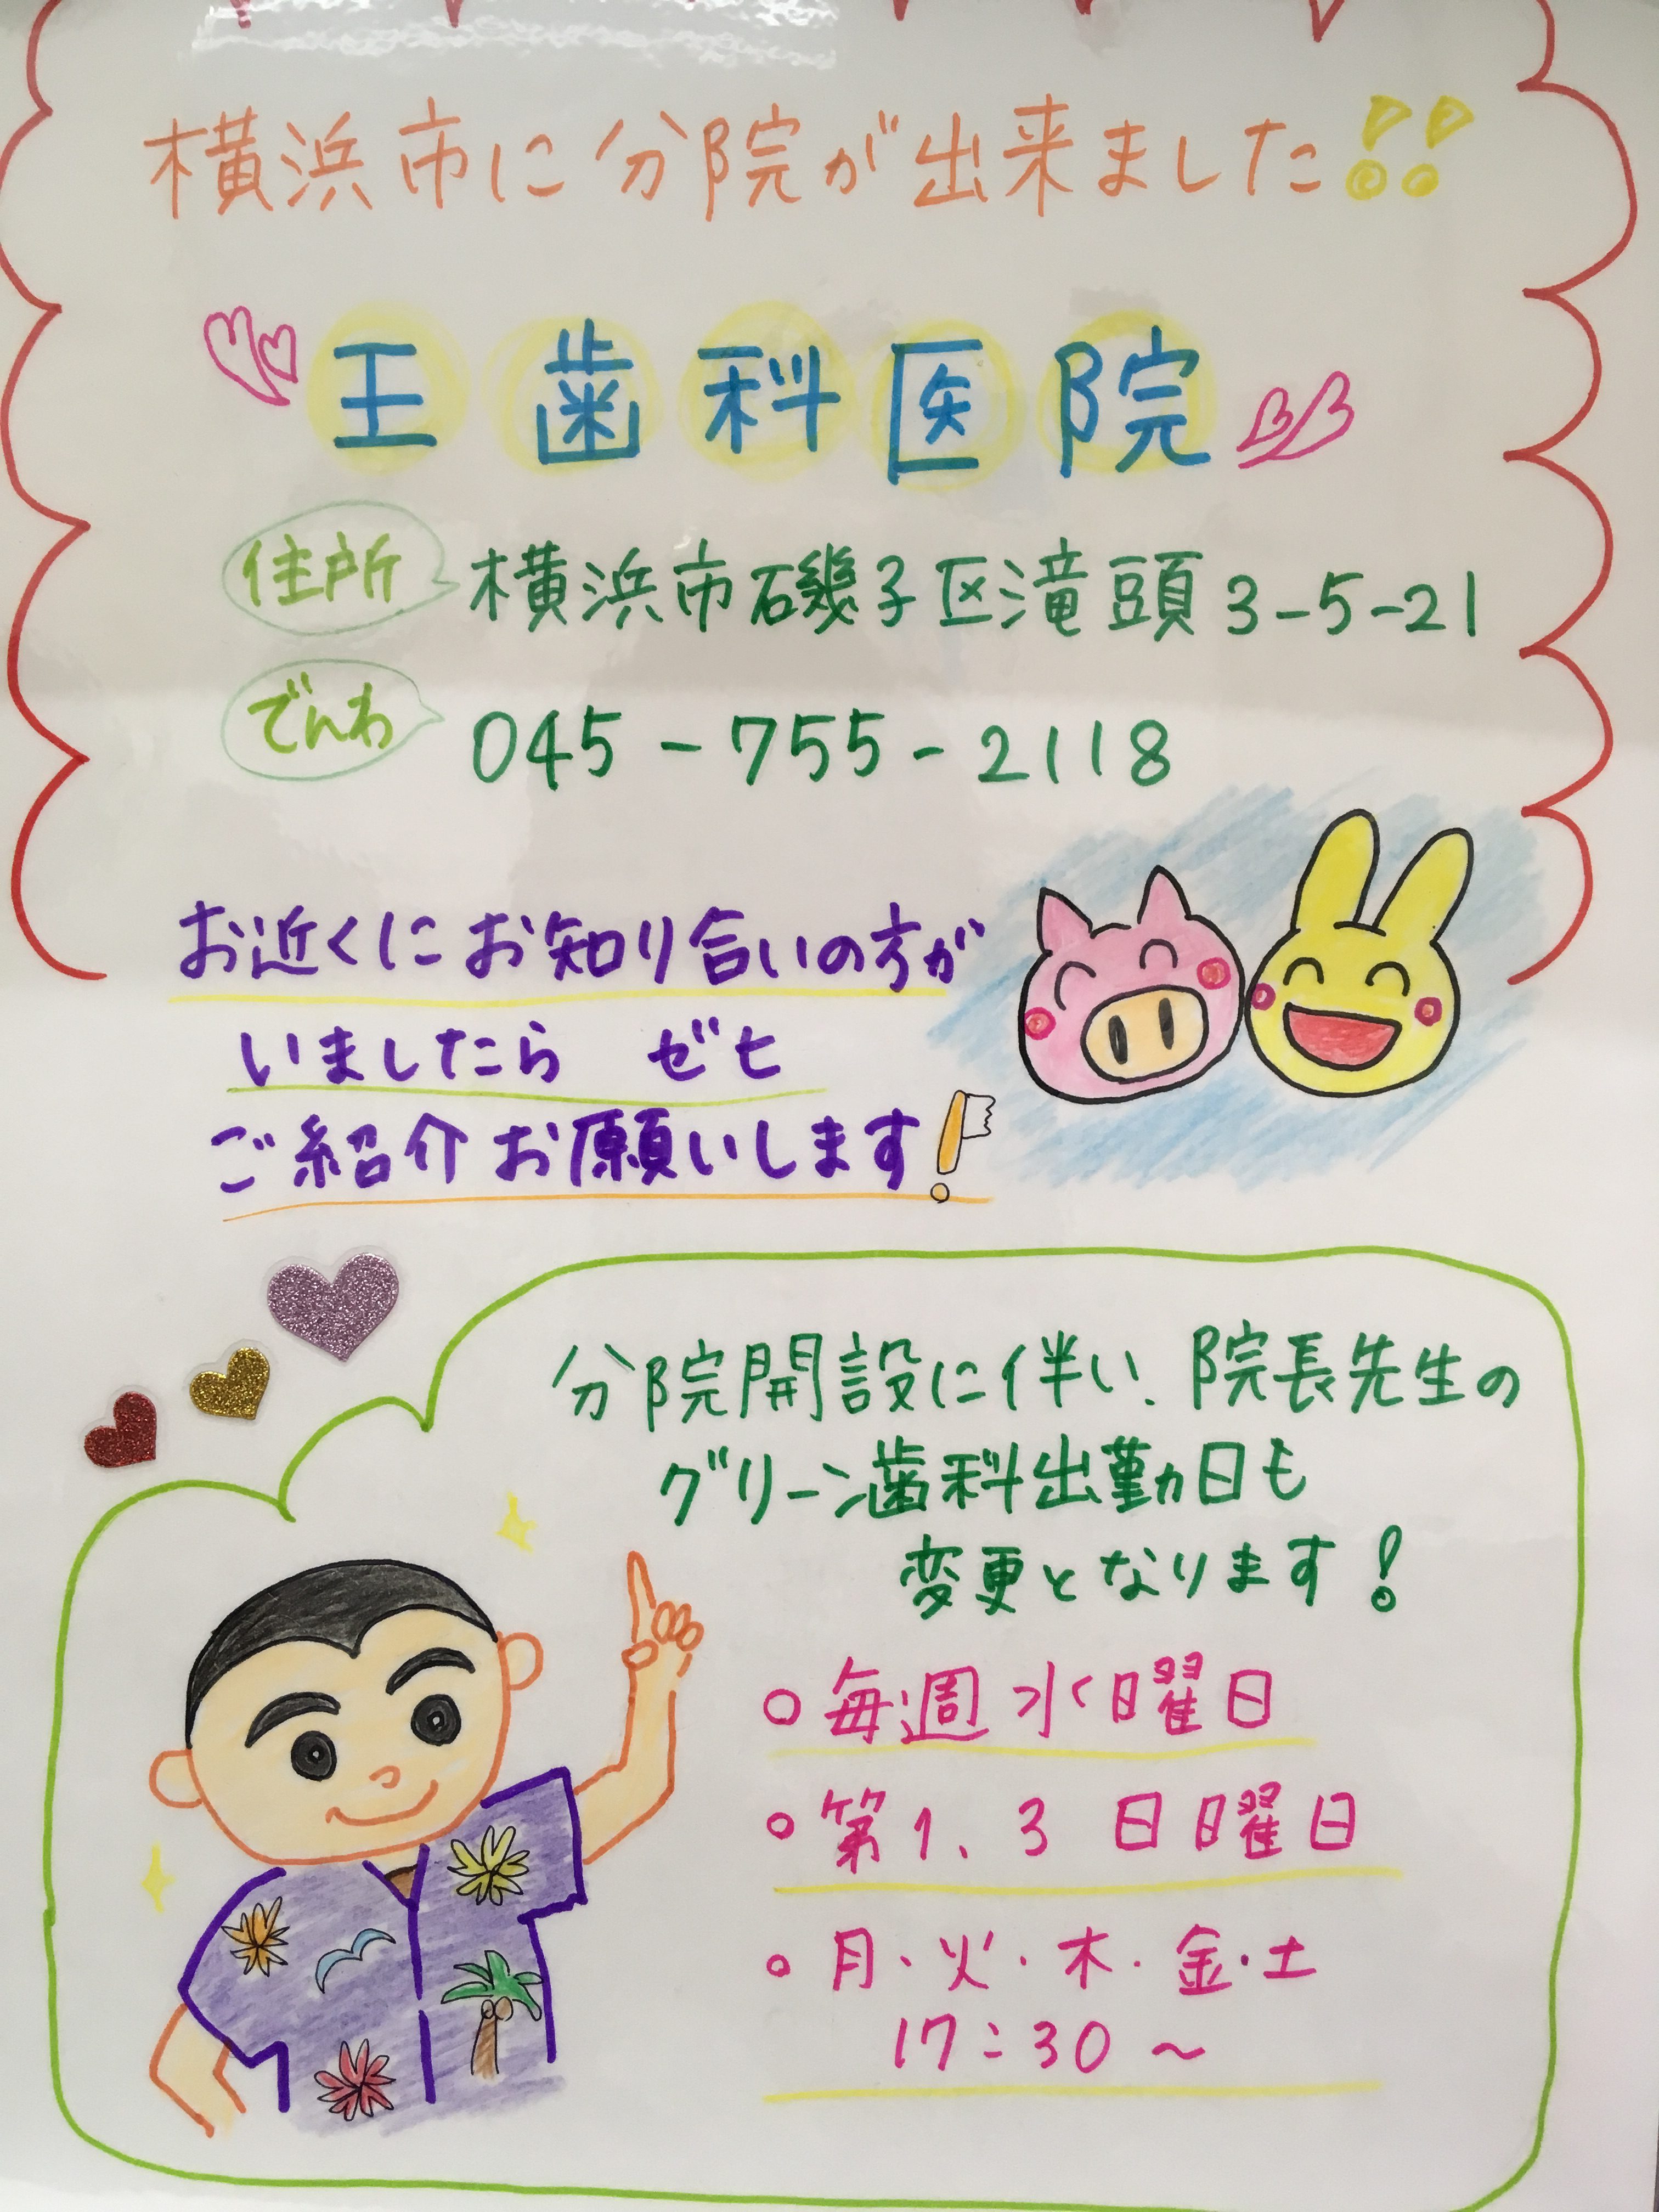 横浜市に分院が出来ました!!
王歯科医院
住所 横浜市磯子区滝頭3-5-21
でんわ 045-755-2118
お近くにお知り合いの方が
いましたら ゼヒ
ご紹介お願いします!
分院開設に伴い、院長先生の
グリーン歯科出勤日も
変更となります!
○毎週水曜日
○第1、3日曜日
○月・火・木・金・土
17:30~